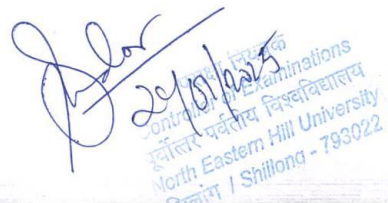 29/01/2025
परीक्षा नियंत्रक
Controller of Examinations
पूर्वोत्तर पर्वतीय विश्वविद्यालय
North Eastern Hill University
शिलांग / Shillong - 793022